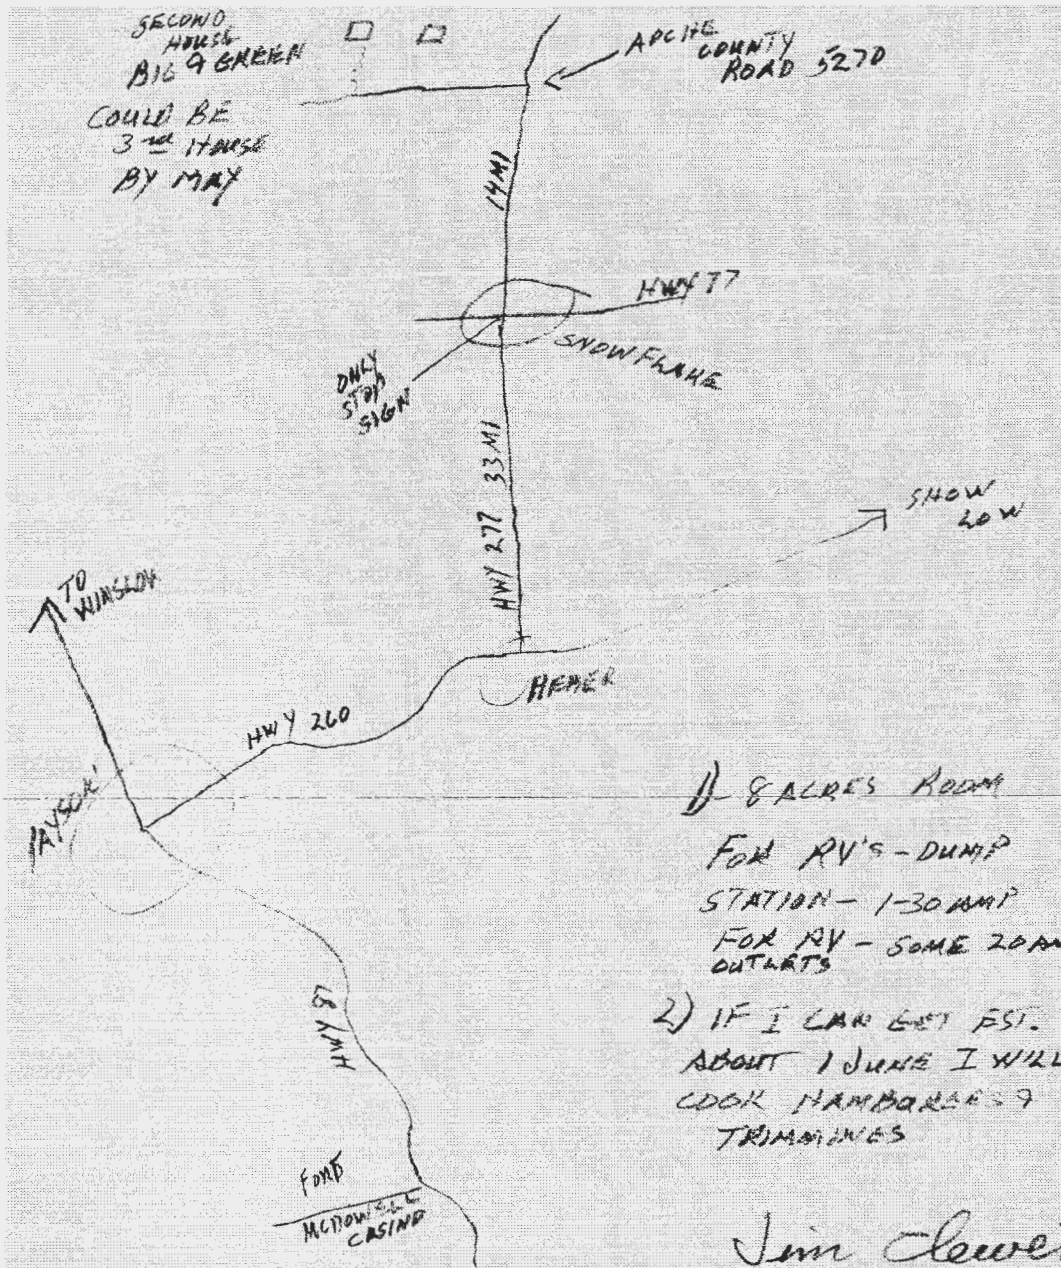 SECOND
HOUSE
BIG & GREEN
COULD BE
3rd HOUSE
BY MAY
APCHE
COUNTY
ROAD 5270
14 MI
HWY 77
SNOWFLAKE
ONLY
STOP
SIGN
HWY 277 33 MI
SHOW
LOW
TO
WINSLOW
HEBER
HWY 260
PAYSON
1) - 8 ACRES ROOM
FOR RV'S - DUMP
STATION - 1-30 AMP
FOR RV - SOME 20 AM
OUTLETS
HWY 87
2) IF I CAN GET EST.
ABOUT 1 JUNE I WILL
COOK HAMBURGERS &
TRIMMINGS
FORT
MCDOWELL
CASINO
Jim